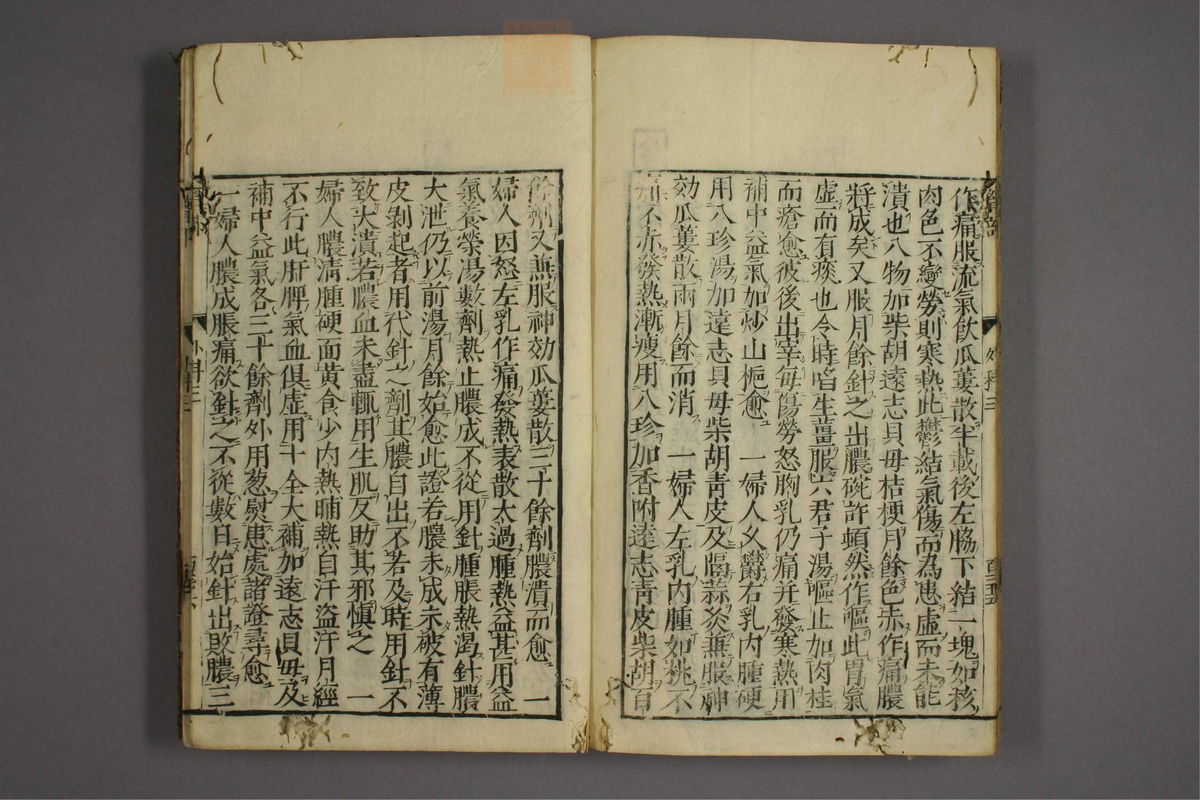 作痛服流氣飲瓜蔞散半載後左脇下結一塊如核
肉色不變勞則寒熱此鬱結氣傷而為患虛而未能
潰也八物加柴胡遠志貝毋桔梗月餘色赤作痛膿
將成矣又服月餘針之出膿碗許頓然作嘔此胃氣
虛而有痰也令時啗生薑服六君子湯嘔止加肉桂
而瘡愈彼後出宰毎傷勞怒胸乳仍痛并發寒熱用
補中益氣加炒山梔愈　一婦人久鬱右乳内腫硬
用八珍湯加遠志貝毋柴胡青皮及隔蒜灸兼服神
効瓜蔞散兩月餘而消　一婦人左乳内腫如桃不
痛不赤發熱漸瘦用八珍加香附遠志青皮柴胡百
餘劑又兼服神効瓜蔞散三十餘劑膿潰而愈　一
婦人因怒左乳作痛發熱表散太過腫熱益甚用益
氣養榮湯數劑熱止膿成不從用針腫脹熱渴針膿
大泄仍以前湯月餘始愈此證若膿未成未破有薄
皮剝起者用代針之劑其膿自出不若及時用針不
致大潰若膿血未盡輒用生肌反助其邪慎之　一
婦人膿清腫硬面黄食少内熱晡熱自汗盜汗月經
不行此肝脾氣血俱虛用十全大補加遠志貝毋及
補中益氣各三十餘劑外用葱熨患處諸證尋愈
一婦人膿成脹痛欲針之不從數日始針出敗膿三